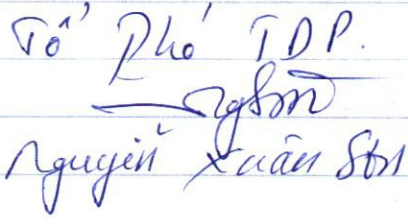 Tổ Phó TDP.
Nguyễn Xuân Sơn